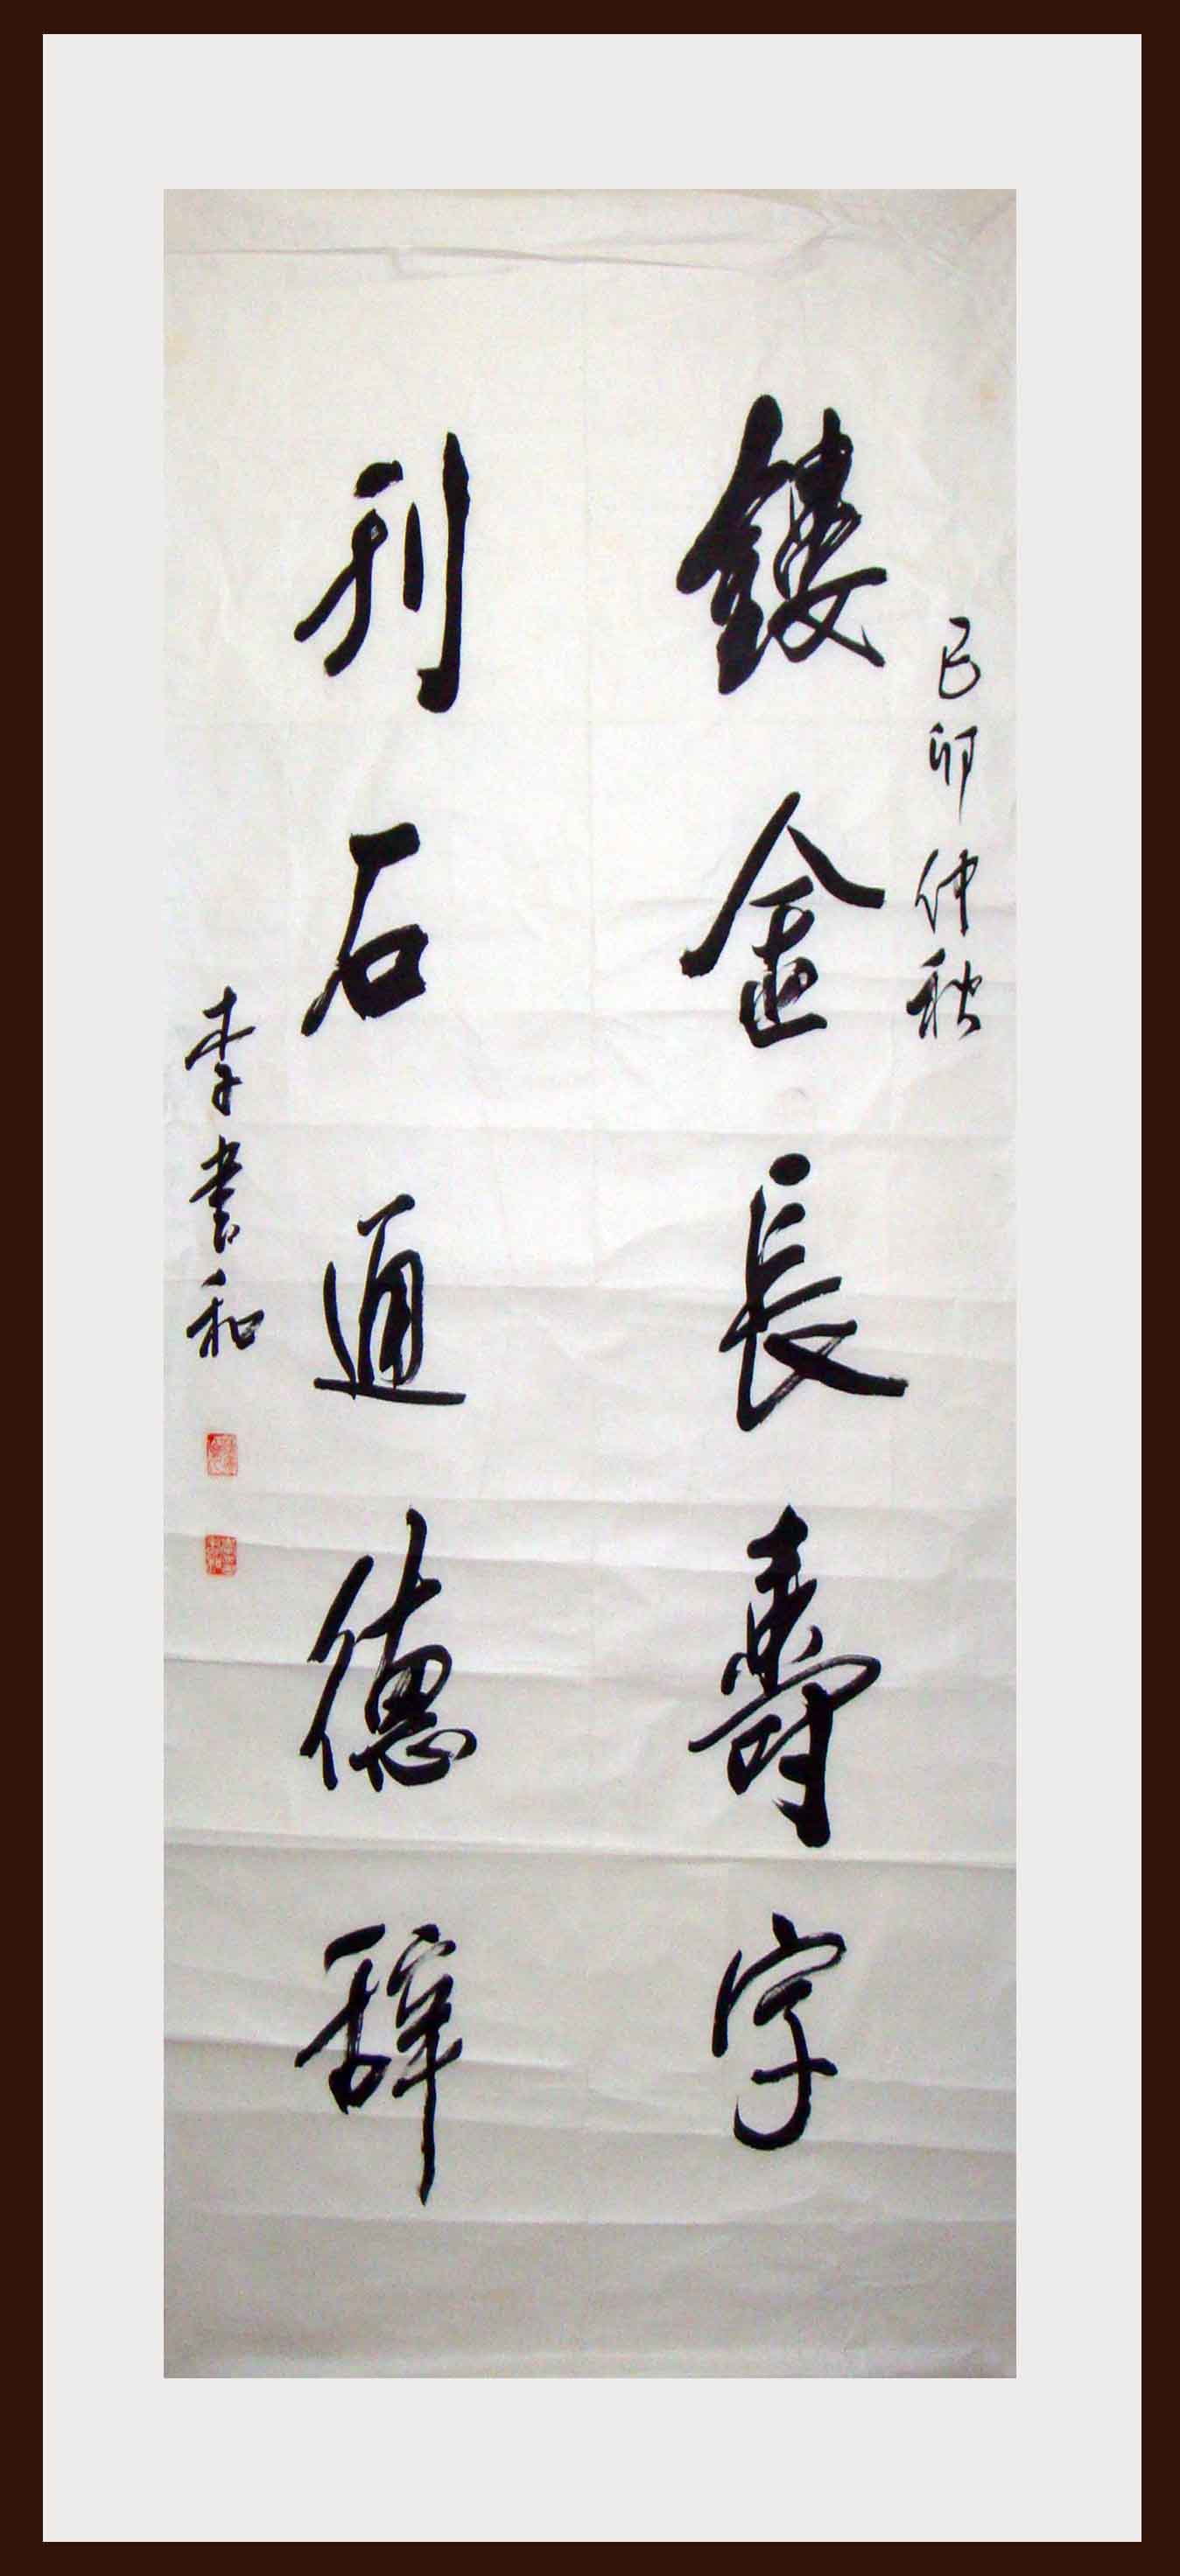 己卯仲秋
镂金長壽字
刊石通德辞
李書和